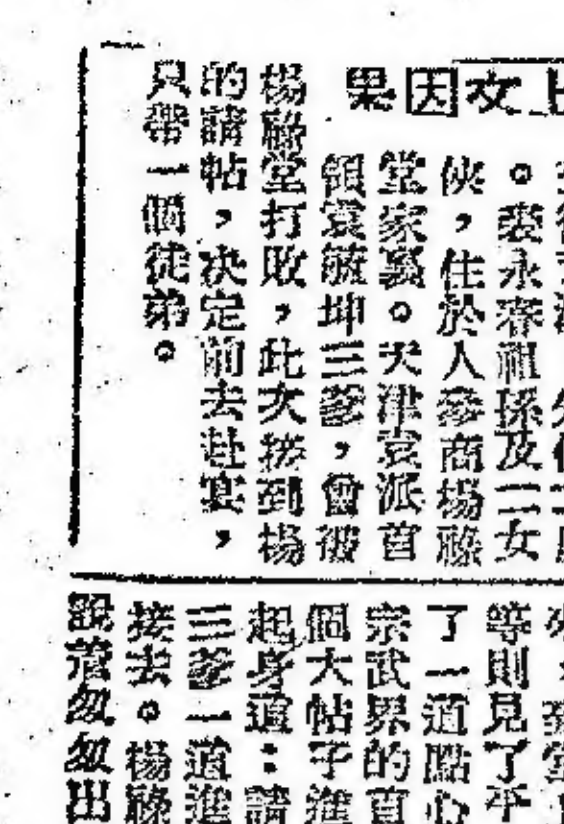 上文因果
。裘永春祖孫及二女
俠，住於人參商楊祿
堂家裏。天津袁派首
領袁毓坤三爹，曾被
楊祿堂打敗，此次接到楊
的請帖，決定前去赴宴，
只帶一個徒弟。
等則見了平
了一道點心
宗武界的首
個大帖子進
起身道：請
三爹一道進
接去。楊祿
說着匆匆出